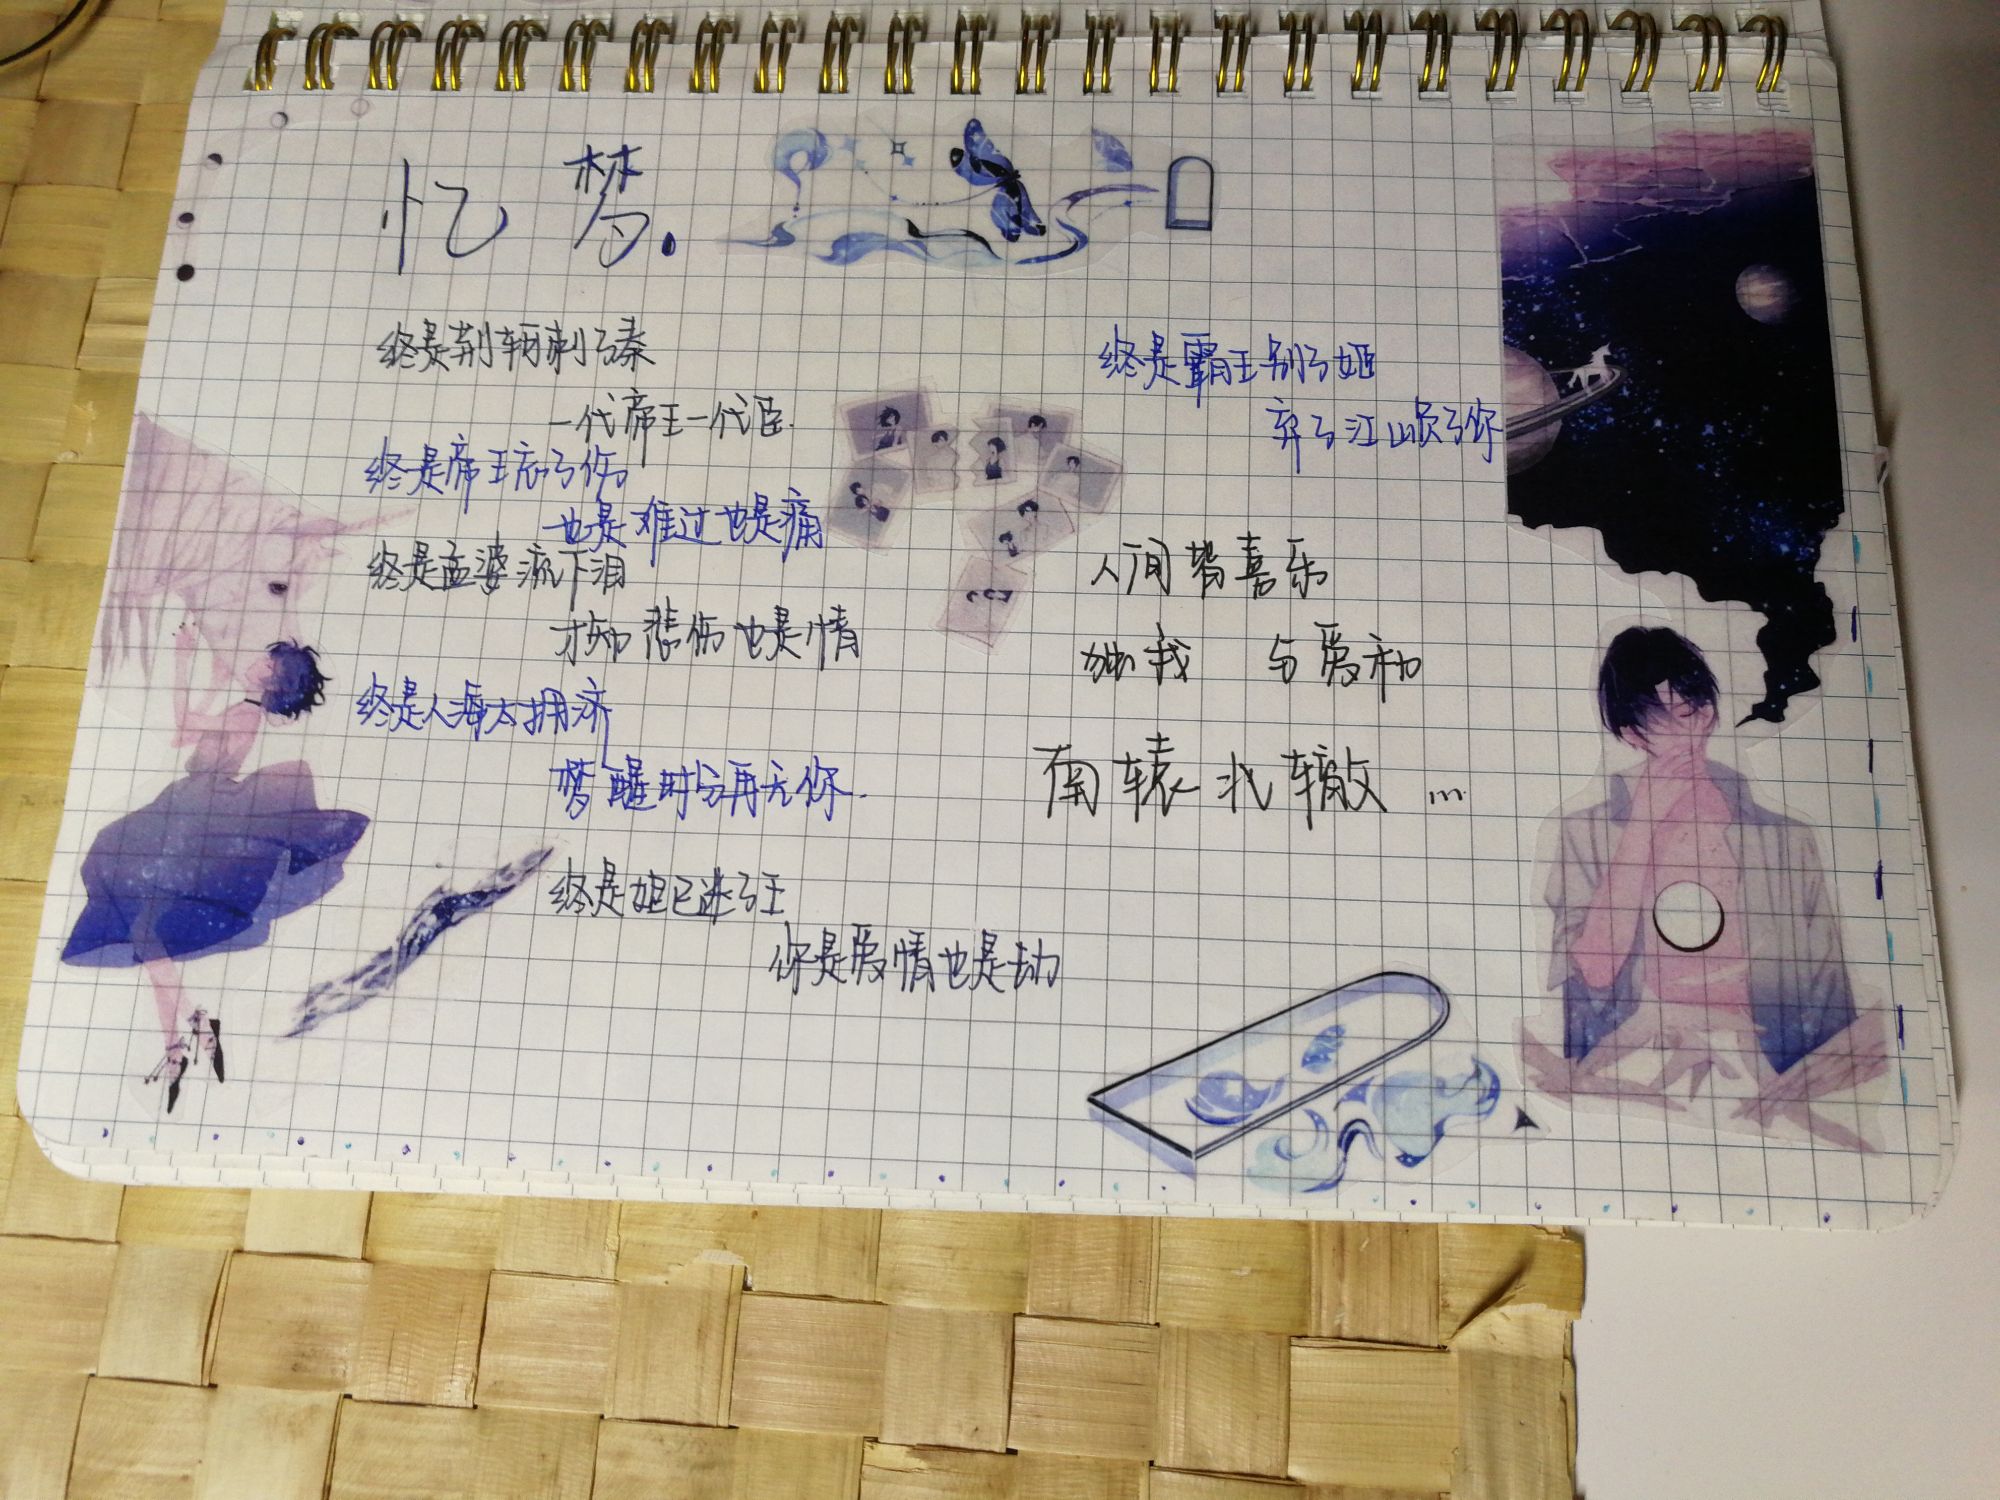 忆梦.
终是荆轲刺了秦
一代帝王一代臣.
终是帝王衣了伤
也是难过也是痛
终是孟婆流下泪
才知悲伤也是情
终是人海太拥济
梦醒时分再无你.
终是妲己迷了王
你是爱情也是劫
终是霸王别了姬
弃了江山负了你
人间皆喜乐
独我 与爱
南辕北辙 ...